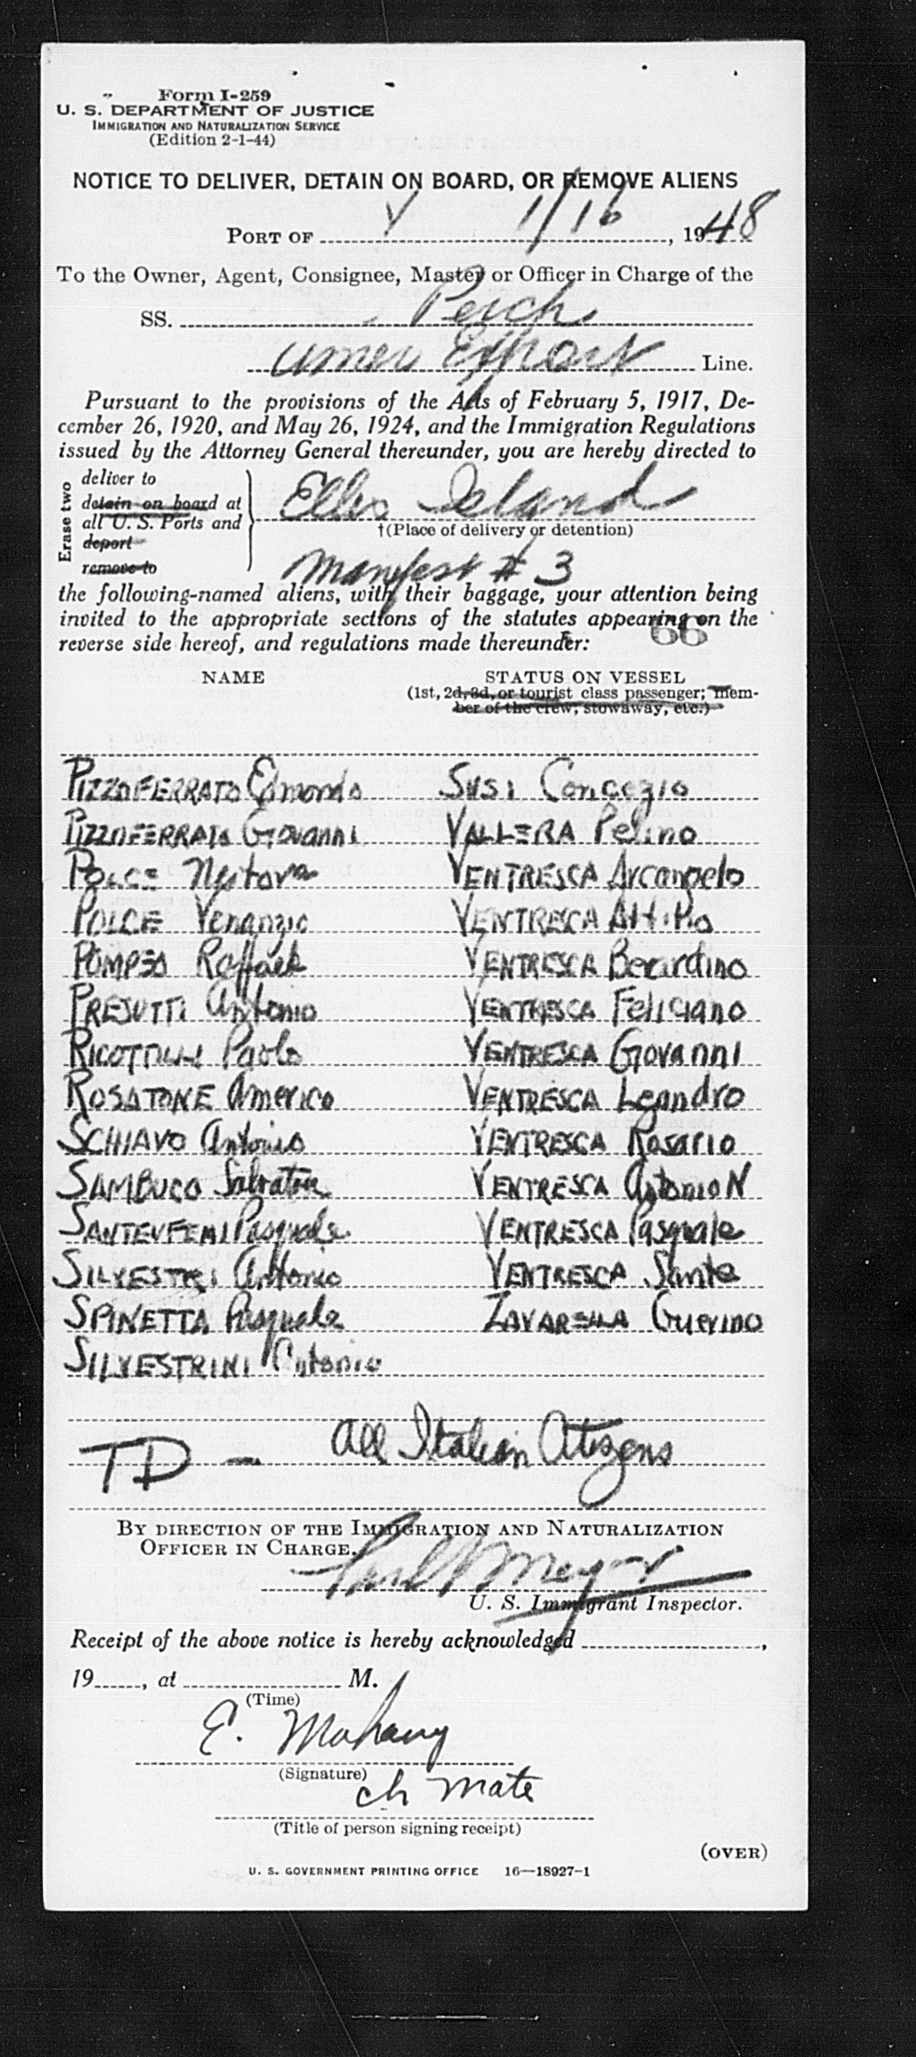 Form I-259
U. S. DEPARTMENT OF JUSTICE
IMMIGRATION AND NATURALIZATION SERVICE
(Edition 2-1-44)
NOTICE TO DELIVER, DETAIN ON BOARD, OR REMOVE ALIENS
PORT OF Y 1/16, 1948
To the Owner, Agent, Consignee, Master or Officer in Charge of the
SS.
Amer Export Line.
Pursuant to the provisions of the Acts of February 5, 1917, De-
cember 26, 1920, and May 26, 1924, and the Immigration Regulations
issued by the Attorney General thereunder, you are hereby directed to
Erase two
deliver to
detain on board at
all U. S. Ports and
deport
remove to
Ellis Island
†(Place of delivery or detention)
Manifest # 3
the following-named aliens, with their baggage, your attention being
invited to the appropriate sections of the statutes appearing on the
66
reverse side hereof, and regulations made thereunder:
NAME STATUS ON VESSEL
(1st, 2d, 3d, or tourist class passenger; mem-
ber of the crew, stowaway, etc.)
PIZZOFERRATO Edmondo SUSI Concezio
PIZZOFERRATO GIOVANNI VALLERA Pelino
POLCE VENTRESCA Arcangelo
POLCE Venanzio VENTRESCA Attilio
POMPEO Raffaele VENTRESCA Berardino
PRESUTTI Antonio VENTRESCA Feliciano
RICOTTILLI Paolo VENTRESCA Giovanni
ROSATONE Americo VENTRESCA Leandro
SCHIAVO Antonio VENTRESCA Rosario
SAMBUCO Salvatore VENTRESCA Antonio N
Pasquale VENTRESCA Pasquale
SILVESTRI Antonio VENTRESCA Sante
SPINETTA Pasquale ZAVARELLA Guerino
SILVESTRINI Antonio
TD — All Italian Citizens
BY DIRECTION OF THE IMMIGRATION AND NATURALIZATION
OFFICER IN CHARGE.
Meyer
U. S. Immigrant Inspector.
Receipt of the above notice is hereby acknowledged ,
19 , at M.
(Time)
E. Mahany
(Signature)
ch mate
(Title of person signing receipt)
(OVER)
U. S. GOVERNMENT PRINTING OFFICE 16—18927-1